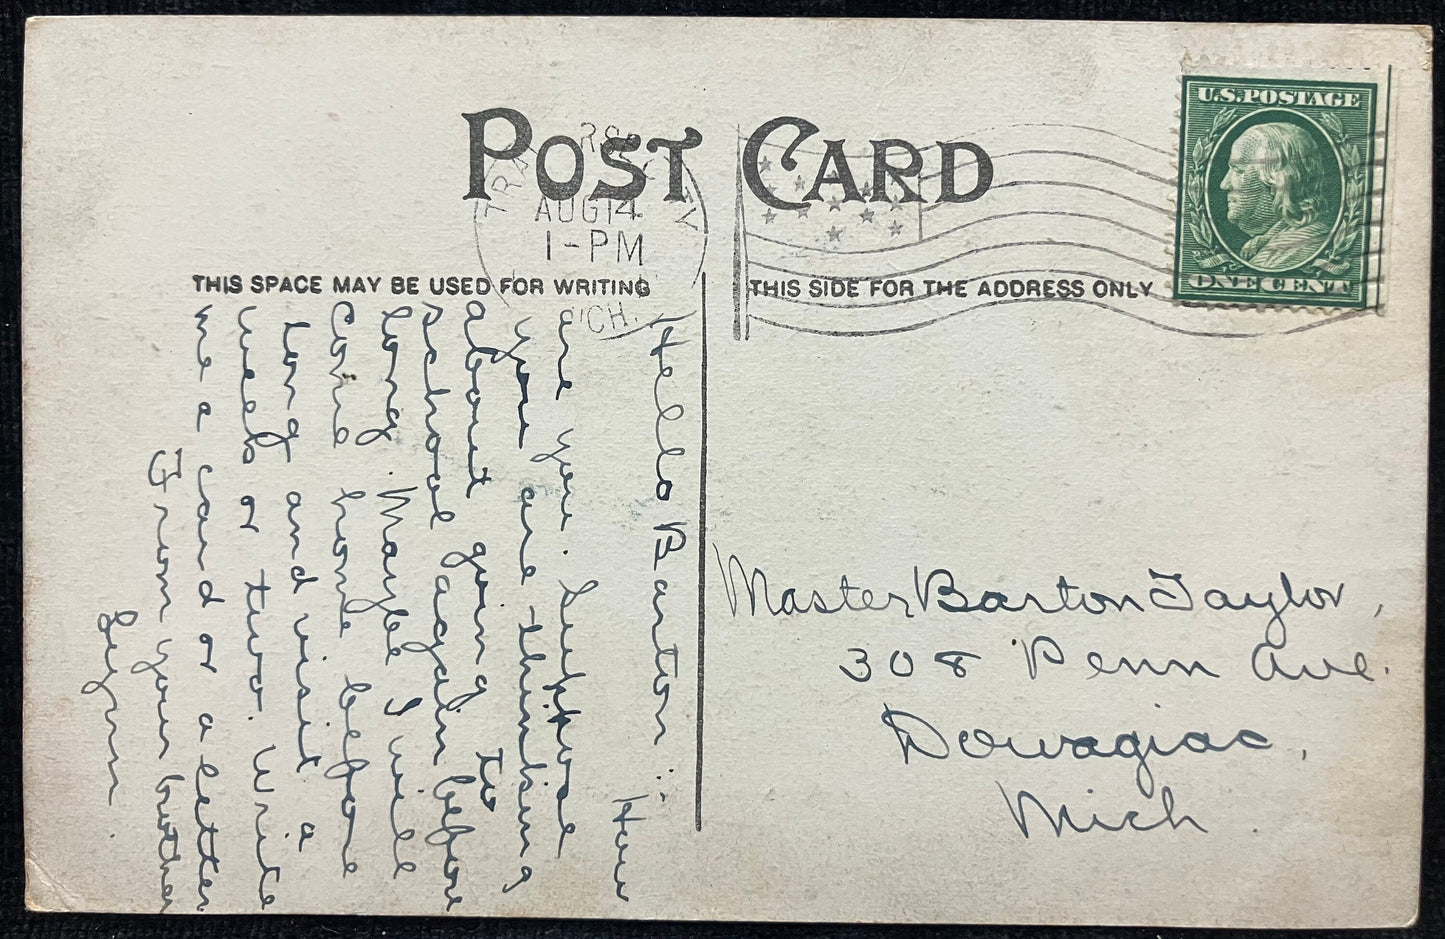 POST CARD
U.S. POSTAGE
ONE CENT
TRAVERSE CITY
AUG 14
1-PM
MICH.
THIS SPACE MAY BE USED FOR WRITING
THIS SIDE FOR THE ADDRESS ONLY
Hello Barton:
How
are you. Suppose
you are thinking
about going to
school again before
long. Maybe I will
come home before
long and visit a
week or two. Write
me a card or a letter
From your brother
Glynn.
Master Barton Taylor,
308 Penn Ave.
Dowagiac,
Mich.